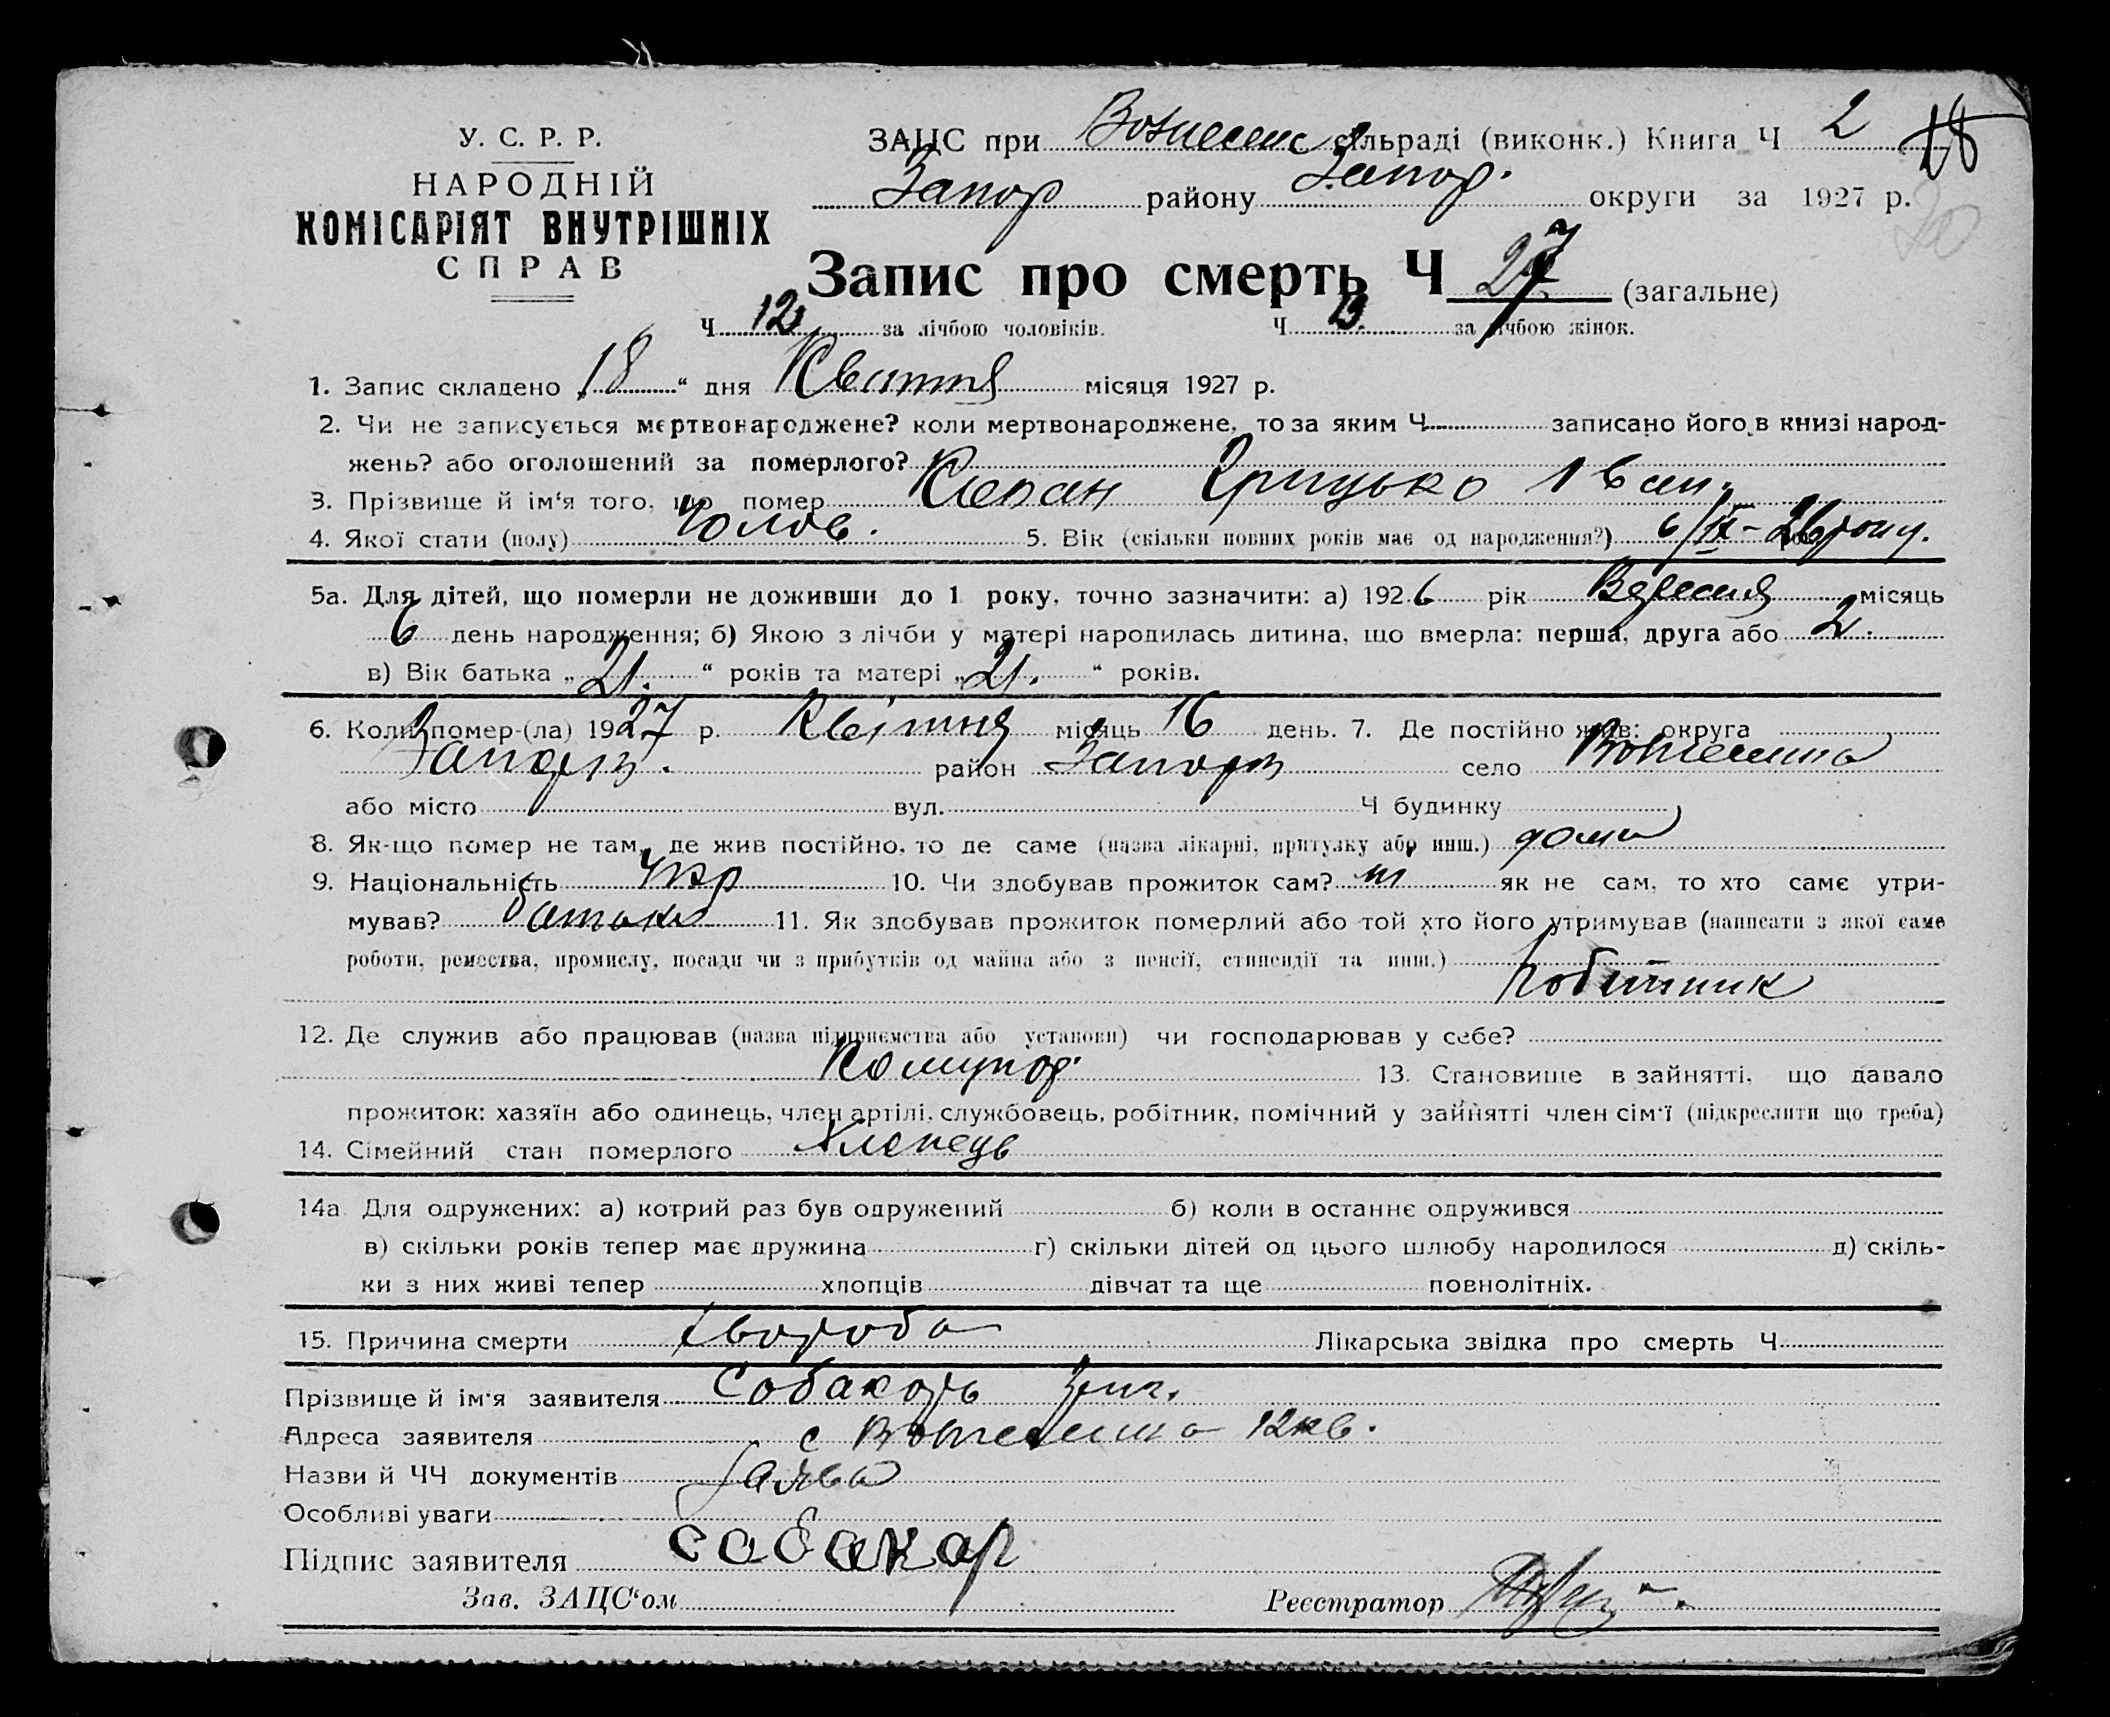 У. С. Р. Р.
НАРОДНІЙ
КОМІСАРІЯТ ВНУТРІШНІХ
СПРАВ
ЗАЦС при Вознесенс сільраді (виконк.) Книга Ч 2 18
Запор району Запор. округи за 1927 р.
20
Запис про смерть Ч 27 (загальне)
Ч 12 за лічбою чоловіків. Ч за лічбою жінок.
1. Запис складено „18“ дня Квітня місяця 1927 р.
2. Чи не записується мертвонароджене? коли мертвонароджене, то за яким Ч записано його в книзі народ-
жень? або оголошений за померлого?
3. Прізвище й ім‘я того, що помер Грицько Іван.
4. Якої стати (полу) Чолов. 5. Вік (скільки повних років має од народження?) 6/IX-26 року.
5а. Для дітей, що померли не доживши до 1 року, точно зазначити: а) 1926 рік Вересня місяць
6 день народження; б) Якою з лічби у матері народилась дитина, що вмерла: перша, друга або 2.
в) Вік батька „21.“ років та матері „21.“ років.
6. Коли помер-(ла) 1927 р. Квітня місяць 16 день. 7. Де постійно жив: округа
Запоріз. район Запоріз село Вознесенка
або місто вул. Ч будинку
8. Як-що помер не там, де жив постійно, то де саме (назва лікарні, притулку або инш.) дома
9. Національність Укр 10. Чи здобував прожиток сам? ні як не сам, то хто саме утри-
мував? батьки 11. Як здобував прожиток померлий або той хто його утримував (написати з якої саме
роботи, ремества, промислу, посади чи з прибутків од майна або з пенсії, стипендії та инш.)
Робітник
12. Де служив або працював (назва підприємства або установи) чи господарював у себе?
Комунор. 13. Становище в зайнятті, що давало
прожиток: хазяїн або одинець, член артілі, службовець, робітник, помічний у зайнятті член сім‘ї (підкреслити що треба)
14. Сімейний стан померлого Хлопець
14а Для одружених: а) котрий раз був одружений б) коли в останнє одружився
в) скільки років тепер має дружина г) скільки дітей од цього шлюбу народилося д) скіль-
ки з них живі тепер хлопців дівчат та ще повнолітніх.
15. Причина смерти хвороба Лікарська звідка про смерть Ч
Прізвище й ім‘я заявителя Собакарь Григ.
Адреса заявителя с Вознесенка 12кв.
Назви й ЧЧ документів Заява
Особливі уваги
Підпис заявителя Собакар
Зав. ЗАЦС‘ом Реєстратор